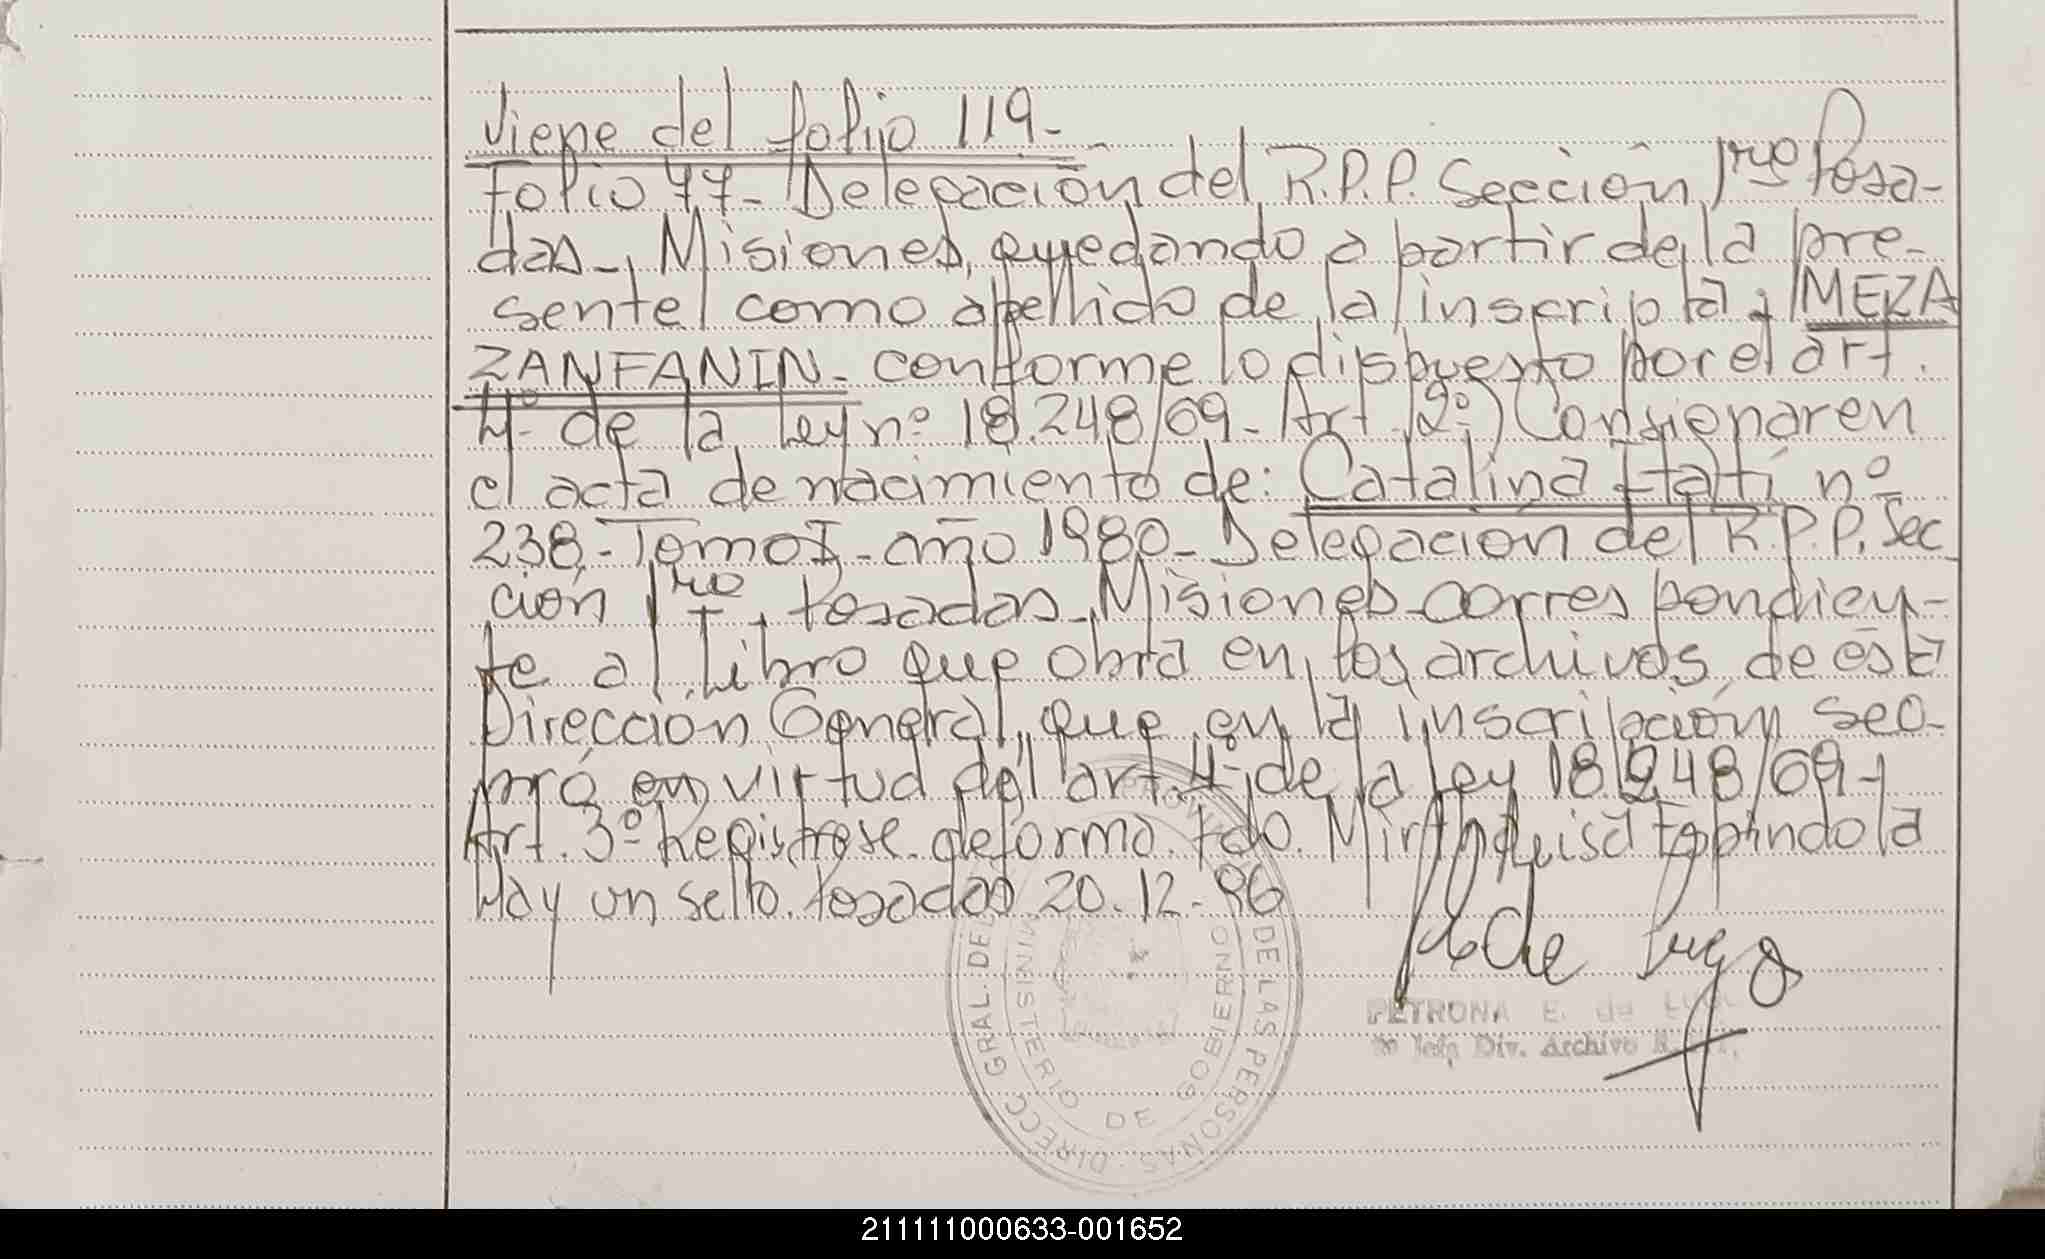 Viene del folio 119-
Folio 77- Delegación del R.P.P. Sección 1ro Posa-
das-, Misiones, quedando a partir de la pre-
sente como apellido de la inscripta; MEZA
ZANFANIN- conforme lo dispuesto por el art.
4º de la Ley nº 18.248/69- Art. 2º) Consignar en
el acta de nacimiento de: Catalina Itatí nº
238- Tomo I- año 1980- Delegación del R.P.P. Sec
ción 1ro, Posadas, Misiones- correspondien-
te al Libro que obra en los archivos de esta
Dirección General, que en la inscripción se o-
pró en virtud del art. 4º de la Ley 18.248/69-
Art. 3º Registrese de forma. Fdo. Mirtha Luisa Espindola
Hay un sello. Posadas 20-12-86
de Lugo
PETRONA E. de Lugo
Div. Archivo
DIRECC. GRAL. DEL DE LAS PERSONAS
MINISTERIO DE GOBIERNO
211111000633-001652